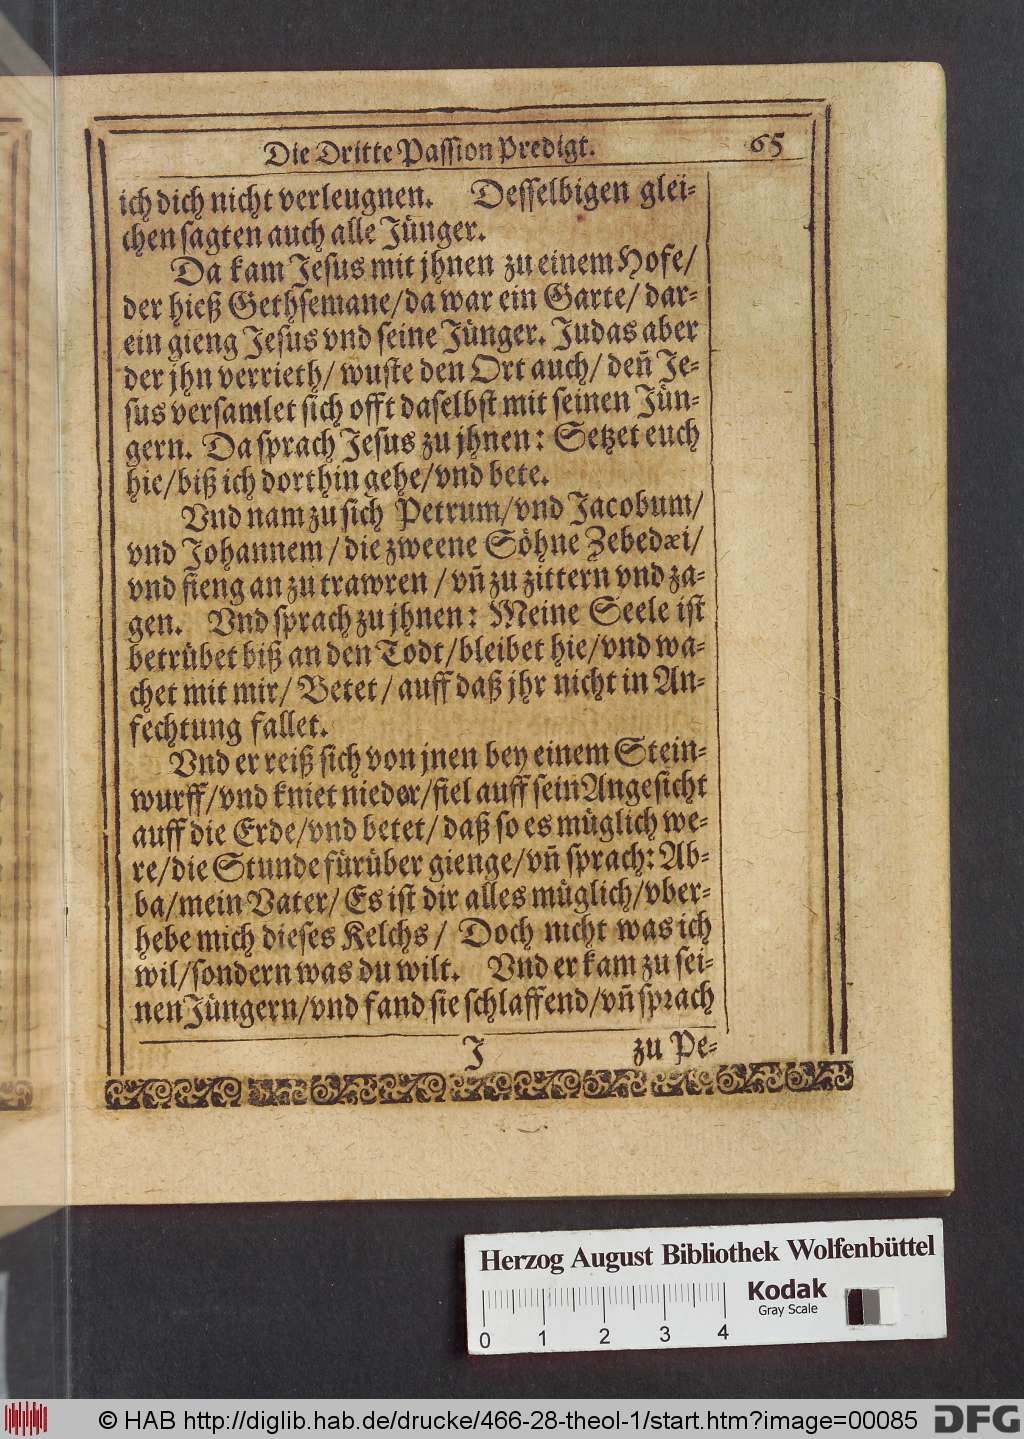 Die Dritte Passion Predigt. 65
ich dich nicht verleugnen. Desselbigen glei-
chen sagten auch alle Jünger.
Da kam Jesus mit jhnen zu einem Hofe/
der hieß Gethsemane/da war ein Garte/ dar-
ein gieng Jesus vnd seine Jünger. Judas aber
der jhn verrieth/ wuste den Ort auch/ den̄ Je-
sus versamlet sich offt daselbst mit seinen Jün-
gern. Da sprach Jesus zu jhnen: Setzet euch
hie/biß ich dorthin gehe/vnd bete.
Vnd nam zu sich Petrum/vnd Jacobum/
vnd Johannem/die zweene Söhne Zebedæi/
vnd fieng an zu trawren/vn̄ zu zittern vnd za-
gen. Vnd sprach zu jhnen: Meine Seele ist
betrübet biß an den Todt/bleibet hie/vnd wa-
chet mit mir/ Betet/auff daß jhr nicht in An-
fechtung fallet.
Vnd er reiß sich von jnen bey einem Stein-
wurff/vnd kniet nieder/fiel auff sein Angesicht
auff die Erde/vnd betet/daß so es müglich we-
re/die Stunde fürüber gienge/vn̄ sprach: Ab-
ba/mein Vater/ Es ist dir alles müglich/vber-
hebe mich dieses Kelchs/ Doch nicht was ich
wil/sondern was du wilt. Vnd er kam zu sei-
nen Jüngern/vnd fand sie schlaffend/vn̄ sprach
J zu Pe-
Herzog August Bibliothek Wolfenbüttel
Kodak
Gray Scale
0 1 2 3 4
© HAB http://diglib.hab.de/drucke/466-28-theol-1/start.htm?image=00085 DFG